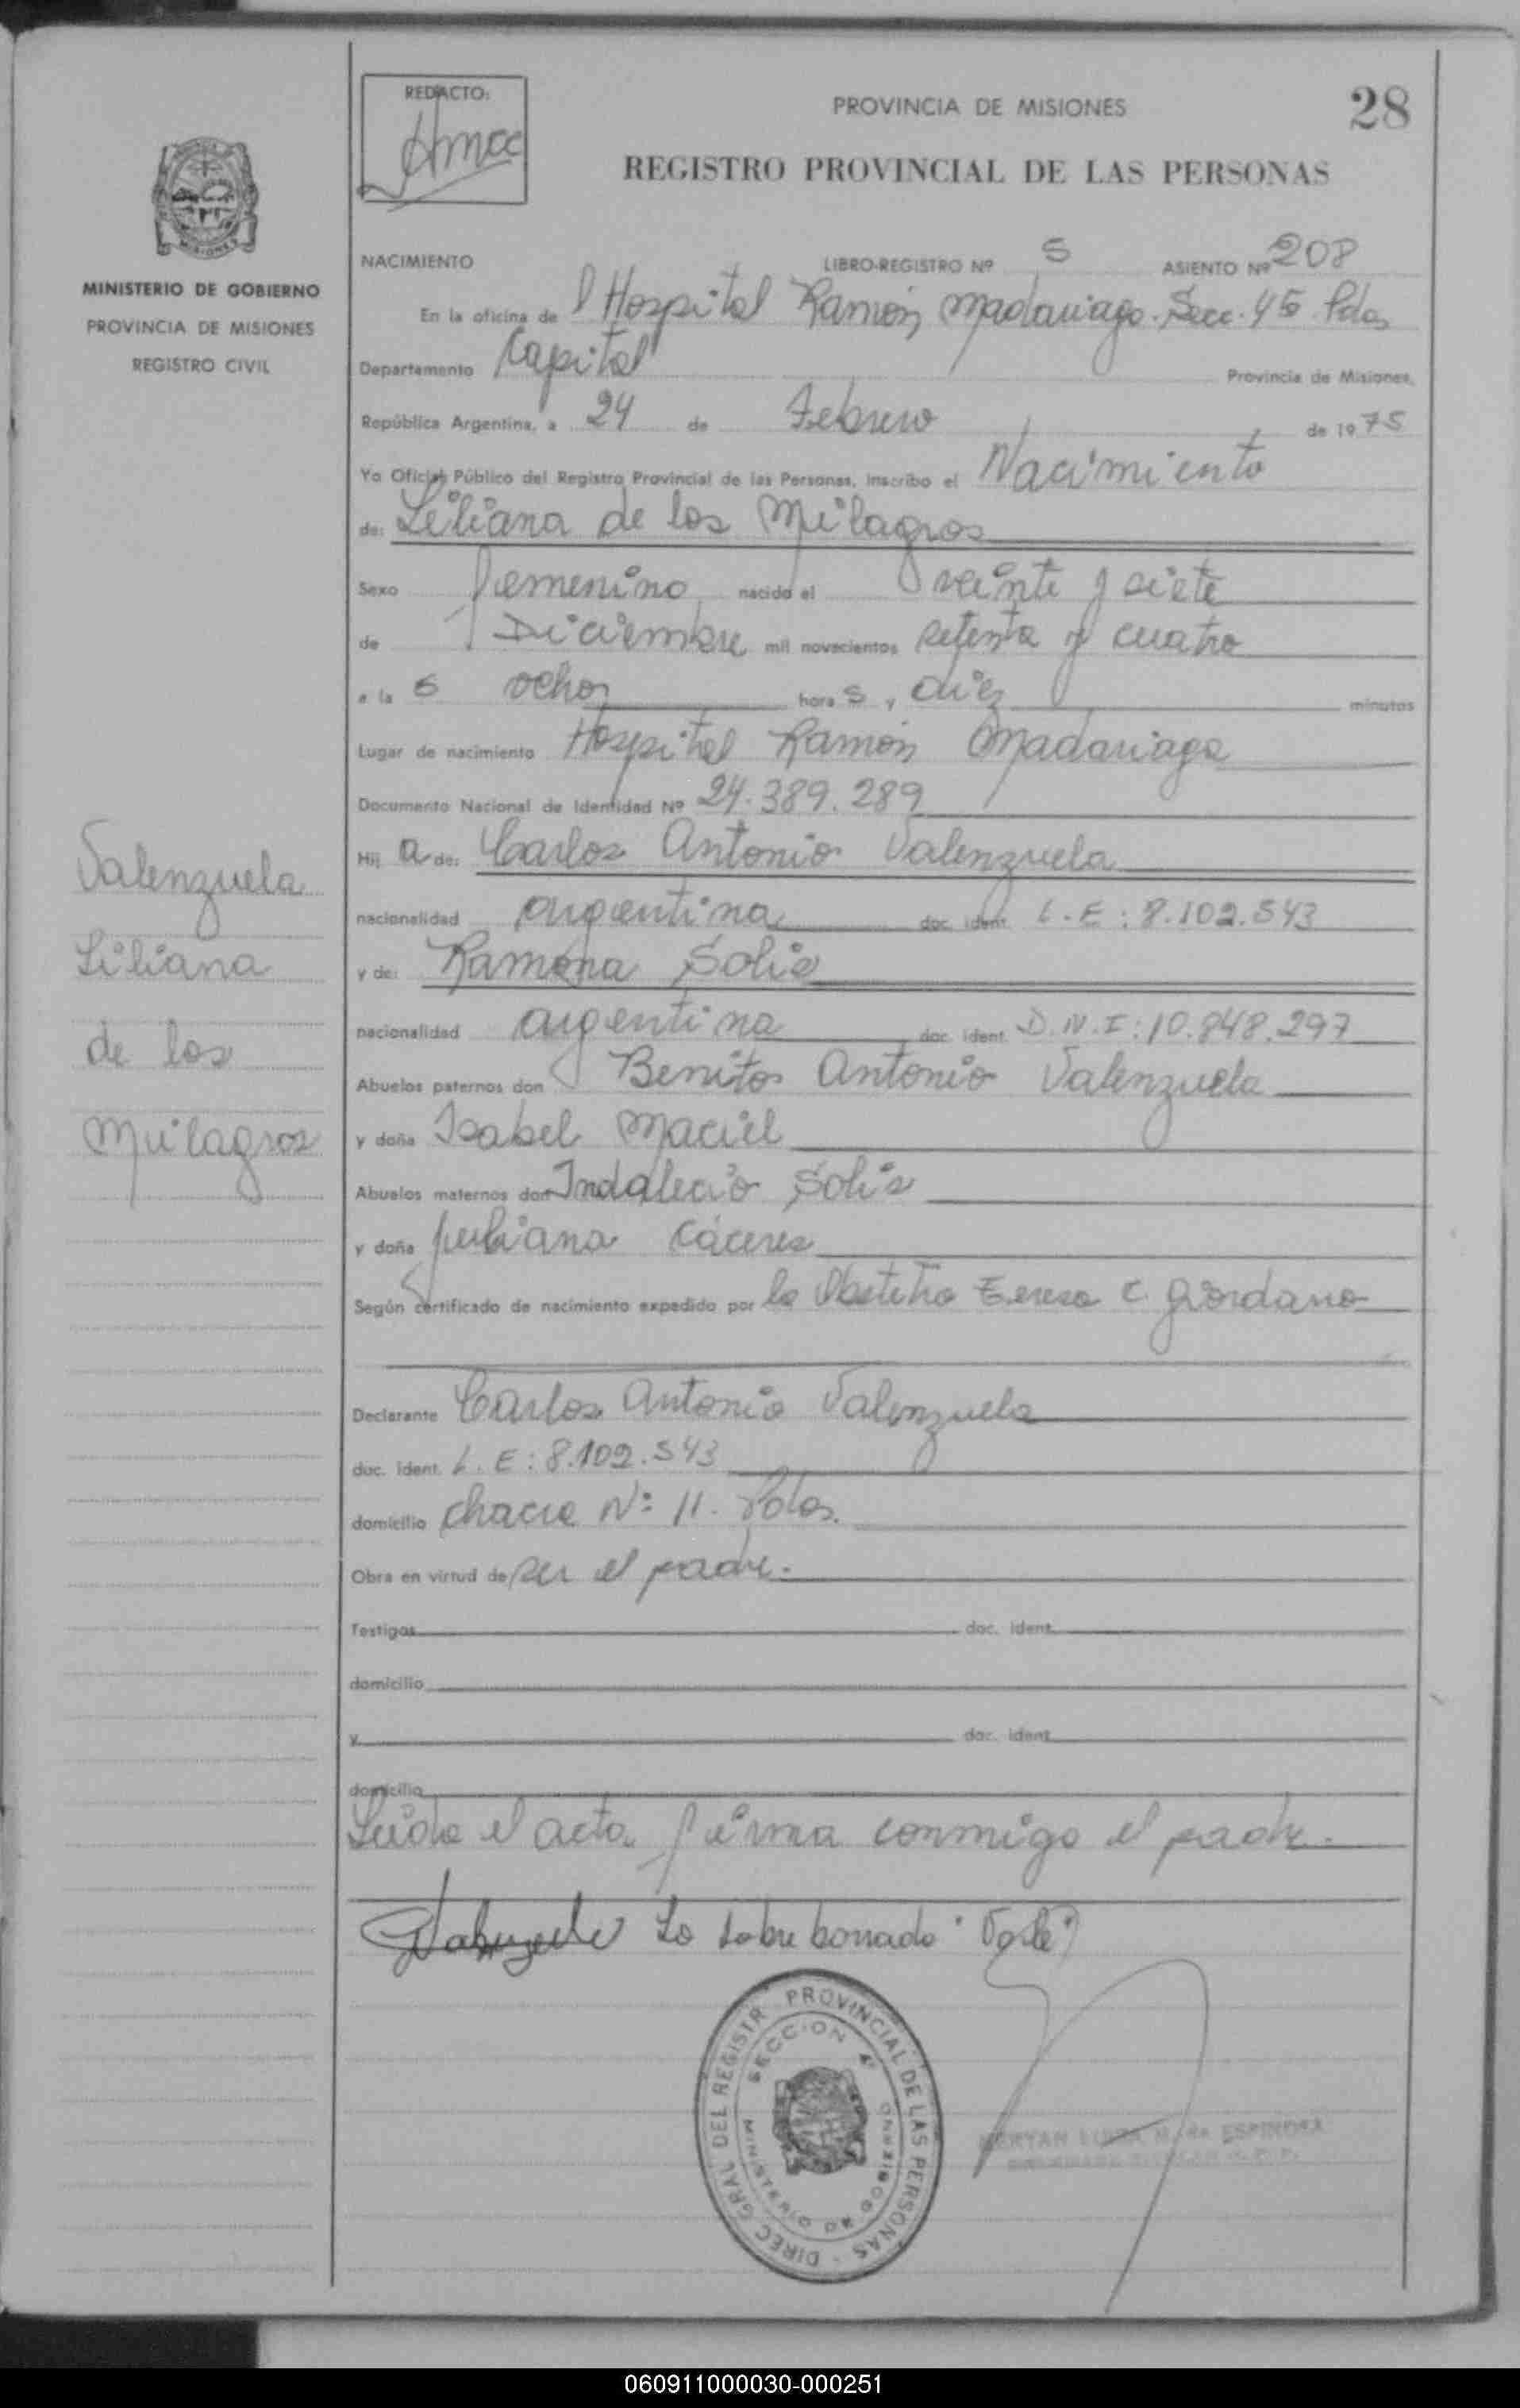 28
REDACTO:
PROVINCIA DE MISIONES
REGISTRO PROVINCIAL DE LAS PERSONAS
MISIONES
MINISTERIO DE GOBIERNO
PROVINCIA DE MISIONES
REGISTRO CIVIL
NACIMIENTO LIBRO-REGISTRO Nº 5 ASIENTO Nº 208
En la oficina del Hospital Ramón Madariaga. Secc. 45 Pdas
Departamento Capital Provincia de Misiones,
República Argentina, a 24 de Febrero de 1975
Yo Oficial Público del Registro Provincial de las Personas, inscribo el Nacimiento
de: Liliana de los Milagros
Sexo femenino nacido el veinte y siete
de Diciembre mil novecientos setenta y cuatro
a la s ocho hora s y diez minutos
Lugar de nacimiento Hospital Ramón Madariaga
Documento Nacional de Identidad Nº 24.389.289
Hij a de: Carlos Antonio Valenzuela
nacionalidad argentina doc. ident. L.E: 8.102.543
y de: Ramona Solis
nacionalidad argentina doc. ident. D.N.I: 10.848.297
Abuelos paternos don Benito Antonio Valenzuela
y doña Isabel Maciel
Abuelos maternos don Indalecio Solis
y doña Juliana Cáceres
Según certificado de nacimiento expedido por la Obstetra Teresa C. Giordano
Declarante Carlos Antonio Valenzuela
doc. ident. L.E: 8.102.543
domicilio Chacra Nº 11. Pdas.
Obra en virtud de ser el padre.
Testigos doc. ident.
domicilio
y doc. ident.
domicilio
Leída el acta firma conmigo el padre.
Lo sobre borrado "Vale"
Valenzuela
Liliana
de los
Milagros
DIREC GRAL DEL REGISTR PROVINCIAL DE LAS PERSONAS
SECCION
MINISTERIO DE GOBIERNO
ESPINOSA
060911000030-000251